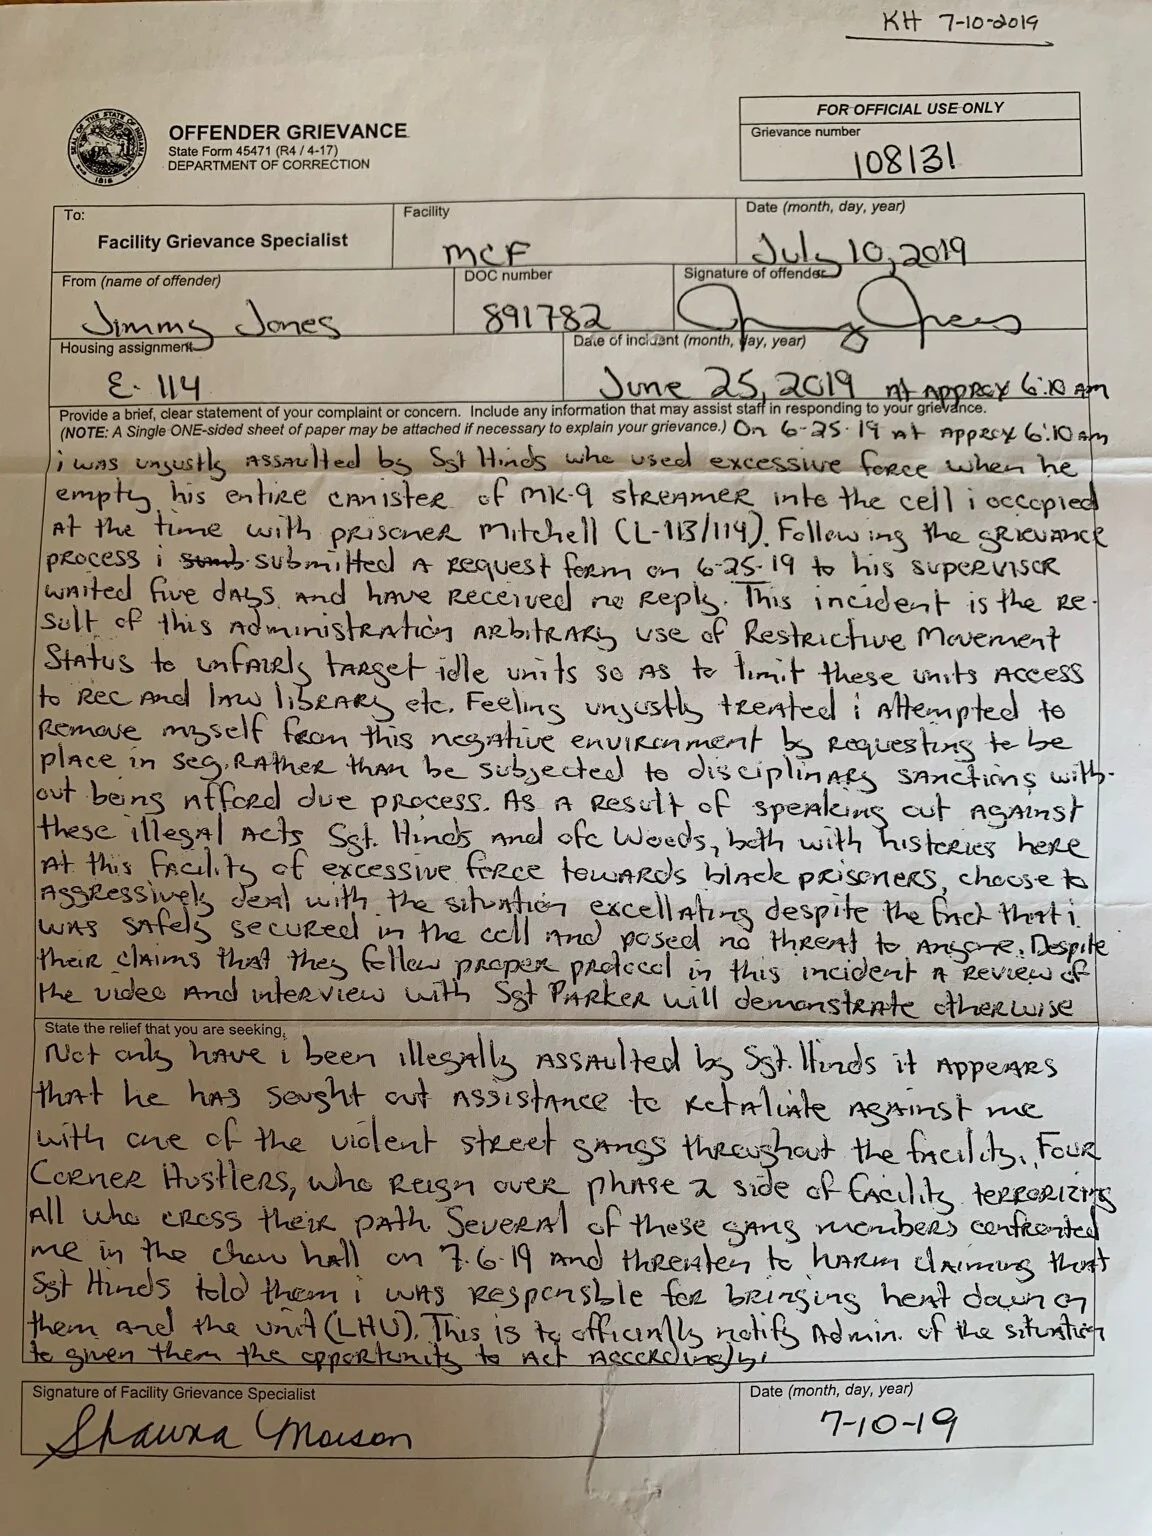 KH 7-10-2019
FOR OFFICIAL USE ONLY
OFFENDER GRIEVANCE
State Form 45471 (R4 / 4-17)
DEPARTMENT OF CORRECTION
Grievance number
108131
To:
Facility Grievance Specialist
Facility
MCF
Date (month, day, year)
July 10, 2019
From (name of offender)
Jimmy Jones
DOC number
891782
Signature of offender
Jimmy Jones
Housing assignment
E-114
Date of incident (month, day, year)
June 25, 2019 at approx 6:10 am
Provide a brief, clear statement of your complaint or concern. Include any information that may assist staff in responding to your grievance.
(NOTE: A Single ONE-sided sheet of paper may be attached if necessary to explain your grievance.) On 6-25-19 at approx 6:10 am
i was unjustly assaulted by Sgt Hinds who used excessive force when he
empty his entire canister of MK-9 streamer into the cell i occopied
at the time with prisoner Mitchell (L-113/114). Following the grievance
process i submitted a request form on 6-25-19 to his supervisor
waited five days and have received no reply. This incident is the re-
sult of this administration arbitrary use of Restrictive Movement
Status to unfairly target idle units so as to limit these units access
to rec and law library etc. Feeling unjustly treated i attempted to
remove myself from this negative environment by requesting to be
place in seg. rather than be subjected to disciplinary sanctions with-
out being afford due process. As a result of speaking out against
these illegal acts Sgt. Hinds and ofc Woods, both with histories here
at this facility of excessive force towards black prisoners, choose to
aggressively deal with the situation excellating despite the fact that i
was safely secured in the cell and posed no threat to anyone. Despite
their claims that they follow proper protocol in this incident a review of
the video and interview with Sgt Parker will demonstrate otherwise
State the relief that you are seeking.
Not only have i been illegally assaulted by Sgt. Hinds it appears
that he has sought out assistance to retaliate against me
with one of the violent street gangs throughout the facility, Four
Corner Hustlers, who reign over phase 2 side of facility terrorizing
all who cross their path. Several of these gang members confronted
me in the chow hall on 7-6-19 and threaten to harm claiming that
Sgt Hinds told them i was responsble for bringing heat down on
them and the unit (LHU). This is to officially notify Admin. of the situation
to given them the opportunity to act accordingly.
Signature of Facility Grievance Specialist
Shawna Morson
Date (month, day, year)
7-10-19